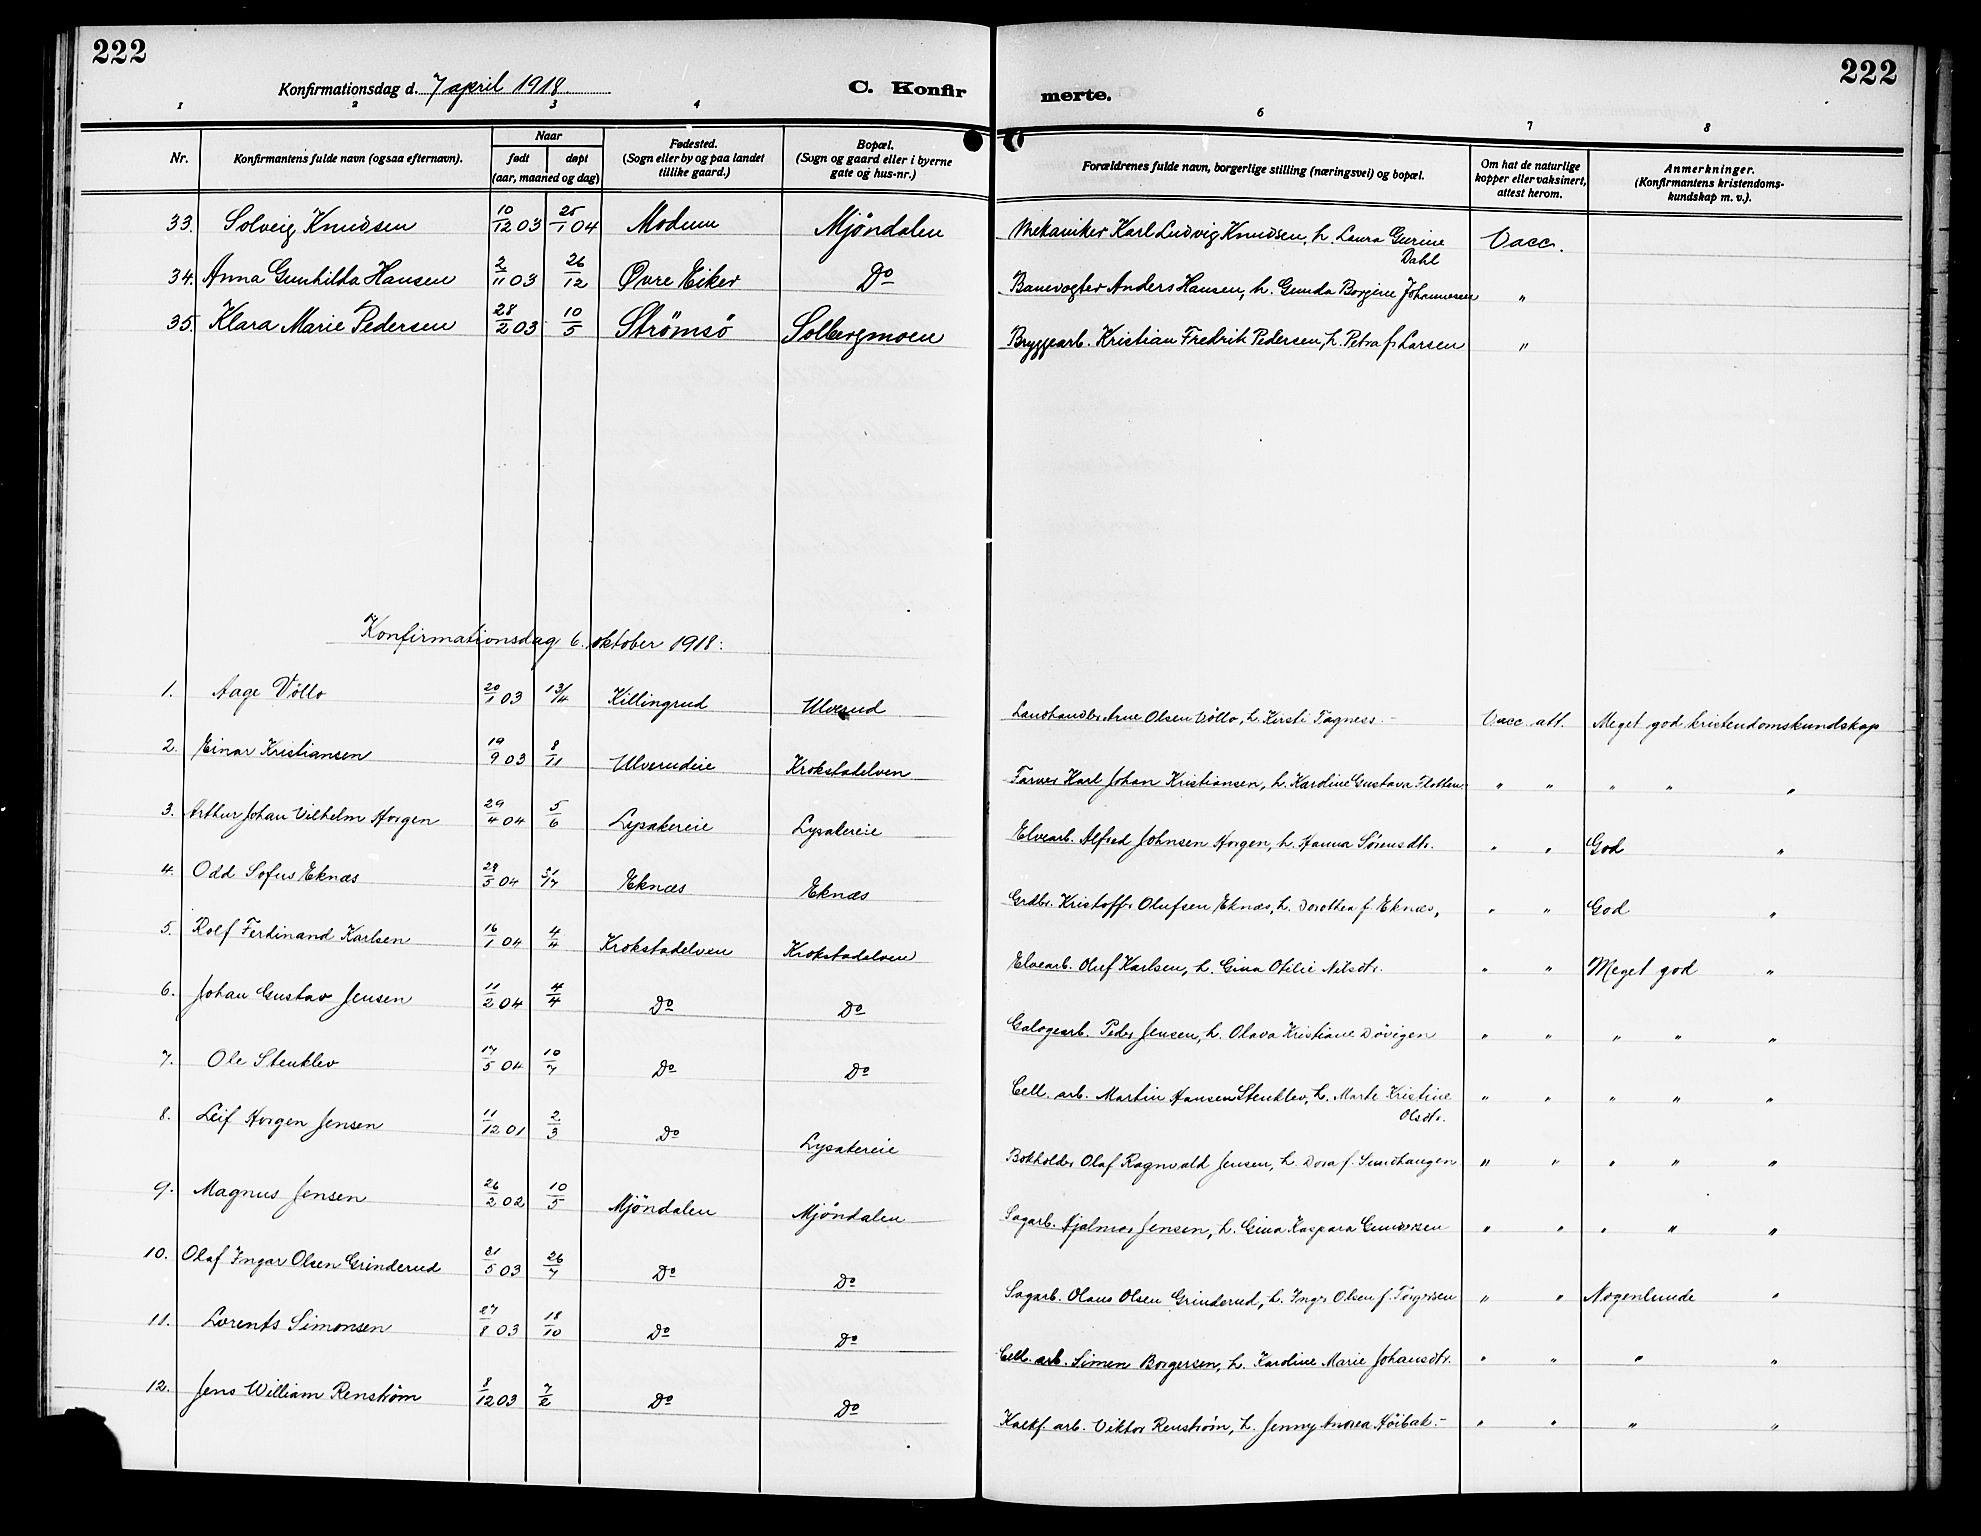 222
222
Konfirmationsdag d. 7 april 1918.
C. Konfir
merte.
1 2 3 4 6 7 8
Nr.
Konfirmantens fulde navn (ogsaa efternavn).
Naar
født
døpt
(aar, maaned og dag)
Fødested.
(Sogn eller by og paa landet
tillike gaard.)
Bopæl.
(Sogn og gaard eller i byerne
gate og hus-nr.)
Forældrenes fulde navn, borgerlige stilling (næringsvei) og bopæl.
Om hat de naturlige
kopper eller vaksinert,
attest herom.
Anmerkninger.
(Konfirmantens kristendoms-
kundskap m. v.).
33. Solveig Knudsen 10/12 03 25/1 04 Modum Mjøndalen Mekaniker Karl Ludvig Knudsen, h. Laura Gurine Vacc.
Dahl
34. Anna Gunhilda Hansen 2/11 03 26/12 Øvre Eiker Do Banevogter Anders Hansen, h. Gunda Borgine Johannesen "
35. Klara Marie Pedersen 28/2 03 10/5 Strømsø Solbergmoen Bryggearb. Kristian Fredrik Pedersen, h. Petra f. Larsen "
Konfirmationsdag 6. oktober 1918:
1. Aage Vøllo 20/1 03 13/4 Killingrud Ulverud Landhandler Arne Olsen Vøllo, h. Kirsti Tagness - Vacc. att. Meget god kristendomskundskap
2. Einar Kristiansen 19/9 03 8/11 Ulverudeie Krokstadelven Farver Karl Johan Kristiansen, h. Karoline Gustava Flotten " " " " "
3. Arthur Johan Vilhelm Horgen 29/4 04 5/6 Lysakereie Lysakereie Elvearb. Alfred Johnsen Horgen, h. Hanna Sørensdtr. " " God "
4. Odd Sofus Eknæs 28/5 04 Eknæs Eknæs Grdbr. Kristoffer Olufsen Eknæs, h. Dorothea f. Eknæs, " " God "
5. Rolf Ferdinand Karlsen 16/1 04 4/4 Krokstadelven Krokstadelven Elvearb. Oluf Karlsen, h. Gina Otilie Nilsdtr. " " Meget god "
6. Johan Gustav Jensen 11/2 04 4/4 Do Do Galogearb. Peder Jensen, h. Olava Kristiane Døvigen " " " " "
7. Ole Stenklev 17/5 04 10/7 Do Do Cell. arb. Martin Hansen Stenklev, h. Marte Kristine " " " " "
Olsdtr.
8. Leif Horgen Jensen 11/12 01 2/3 Do Lysakereie Bokholder Olaf Ragnvald Jensen, h. Dora f. Sundhaugen " " " " "
9. Magnus Jensen 26/2 02 10/5 Mjøndalen Mjøndalen Sagarb. Hjalmar Jensen, h. Gina Kaspara Gundersen " " " " "
10. Olaf Ingar Olsen Grinderud 21/5 03 26/7 Do Do Sagarb. Olaus Olsen Grinderud, h. Inger Olsen f. Torgersen " " Nogenlunde "
11. Lorents Simonsen 27/8 03 18/10 Do Do Cell. arb. Simen Borgersen, h. Karoline Marie Johansdtr. " " " "
12. Jens William Renstrøm 8/12 03 7/2 Do Do Kalkf. arb. Viktor Renstrøm, h. Jenny Andrea Høibak. - " " " "